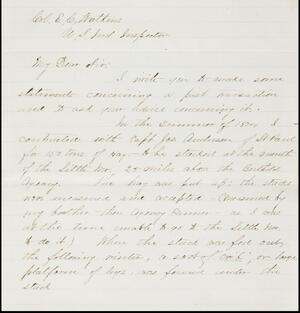 Col. E. C. Watkins
U. S. Ind. Inspector
My Dear Sir:
I write you to make some
statements concerning a past transaction
and to ask your advice concerning it.
In the summer of 1874 I
contracted with Capt Jos Anderson of St Paul
for 100 tons of hay - to be stacked at the mouth
of the Little Mo. 25 miles above the Berthold
Agency. The hay was put up: the stacks
were measured and accepted - (measured by
my brother then Agency Farmer - as I was
at the time unable to go to the Little Mo.
to do it) When the stack was fed out,
the following winter, a sort of "crib", or large
platform of logs, was found under the
stack.